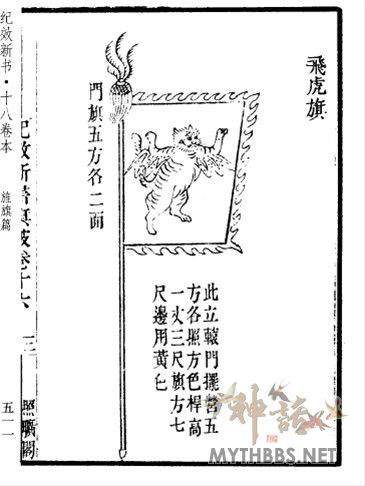 飛虎旗
此立轅門擺營五
方各照方色桿高
一丈三尺旗方七
尺邊用黄色
門旗五方各二面
紀效新書卷十六
三
照曠閣
纪效新书·十八卷本
旌旗篇
五一一
神話
MYTHBBS.NET